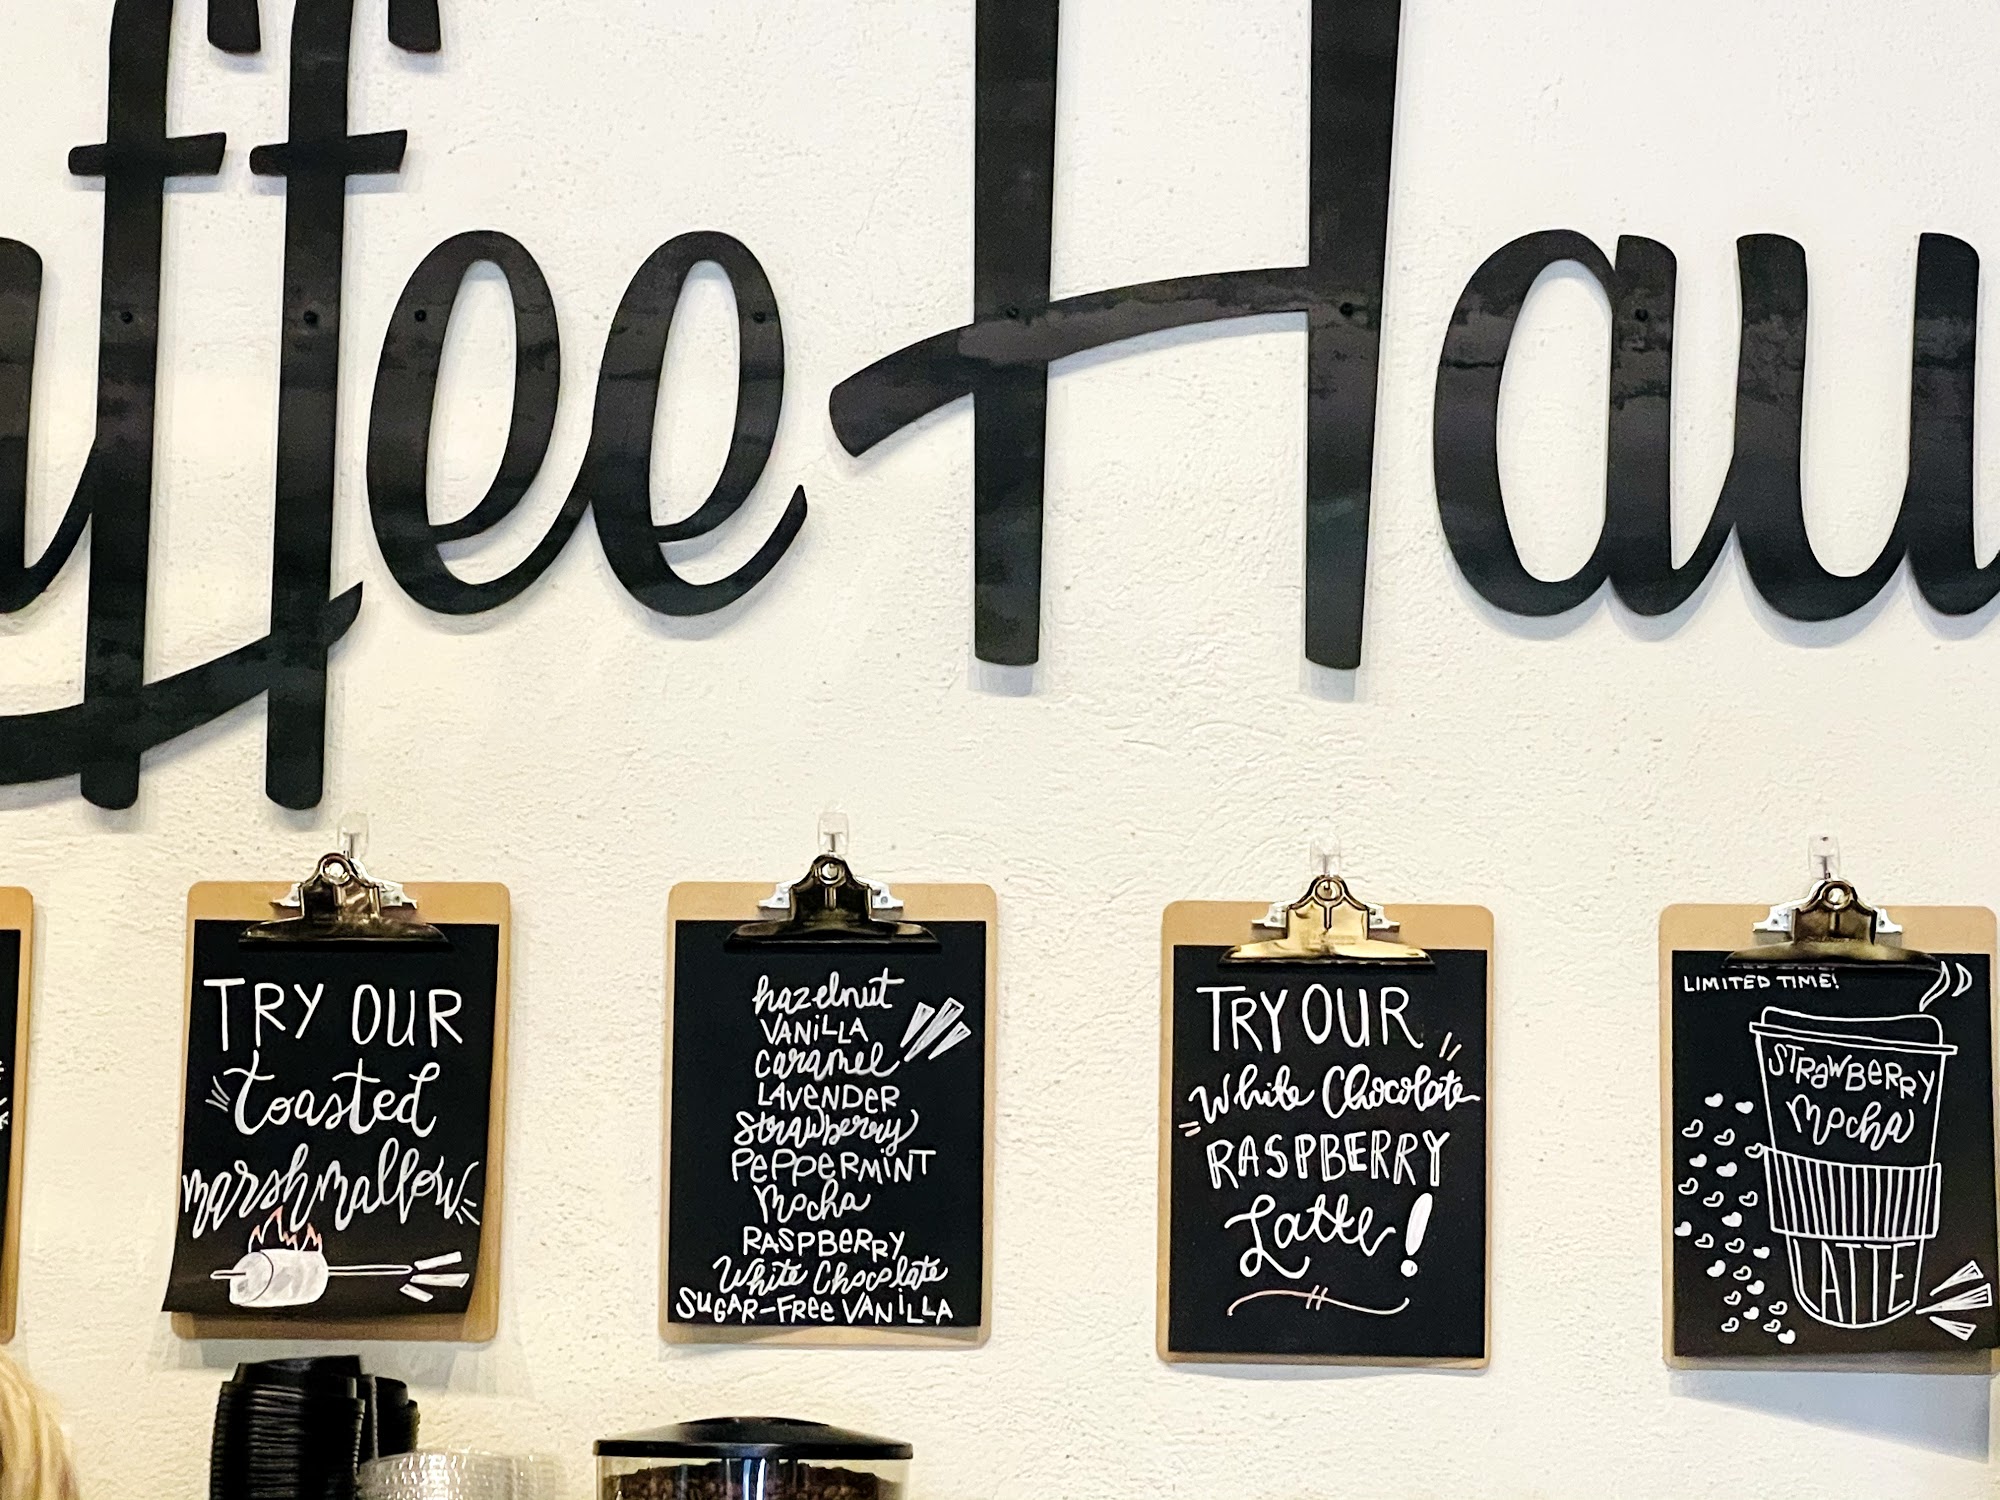 offee Hau
TRY OUR
toasted
marshmallow
hazelnut
VANILLA
caramel
LAVENDER
Strawberry
PEPPERMINT
Mocha
RASPBERRY
White Chocolate
SUGAR-FREE VANILLA
TRY OUR
White Chocolate
RASPBERRY
Latte!
LIMITED TIME!
STRAWBERRY
Mocha
LATTE